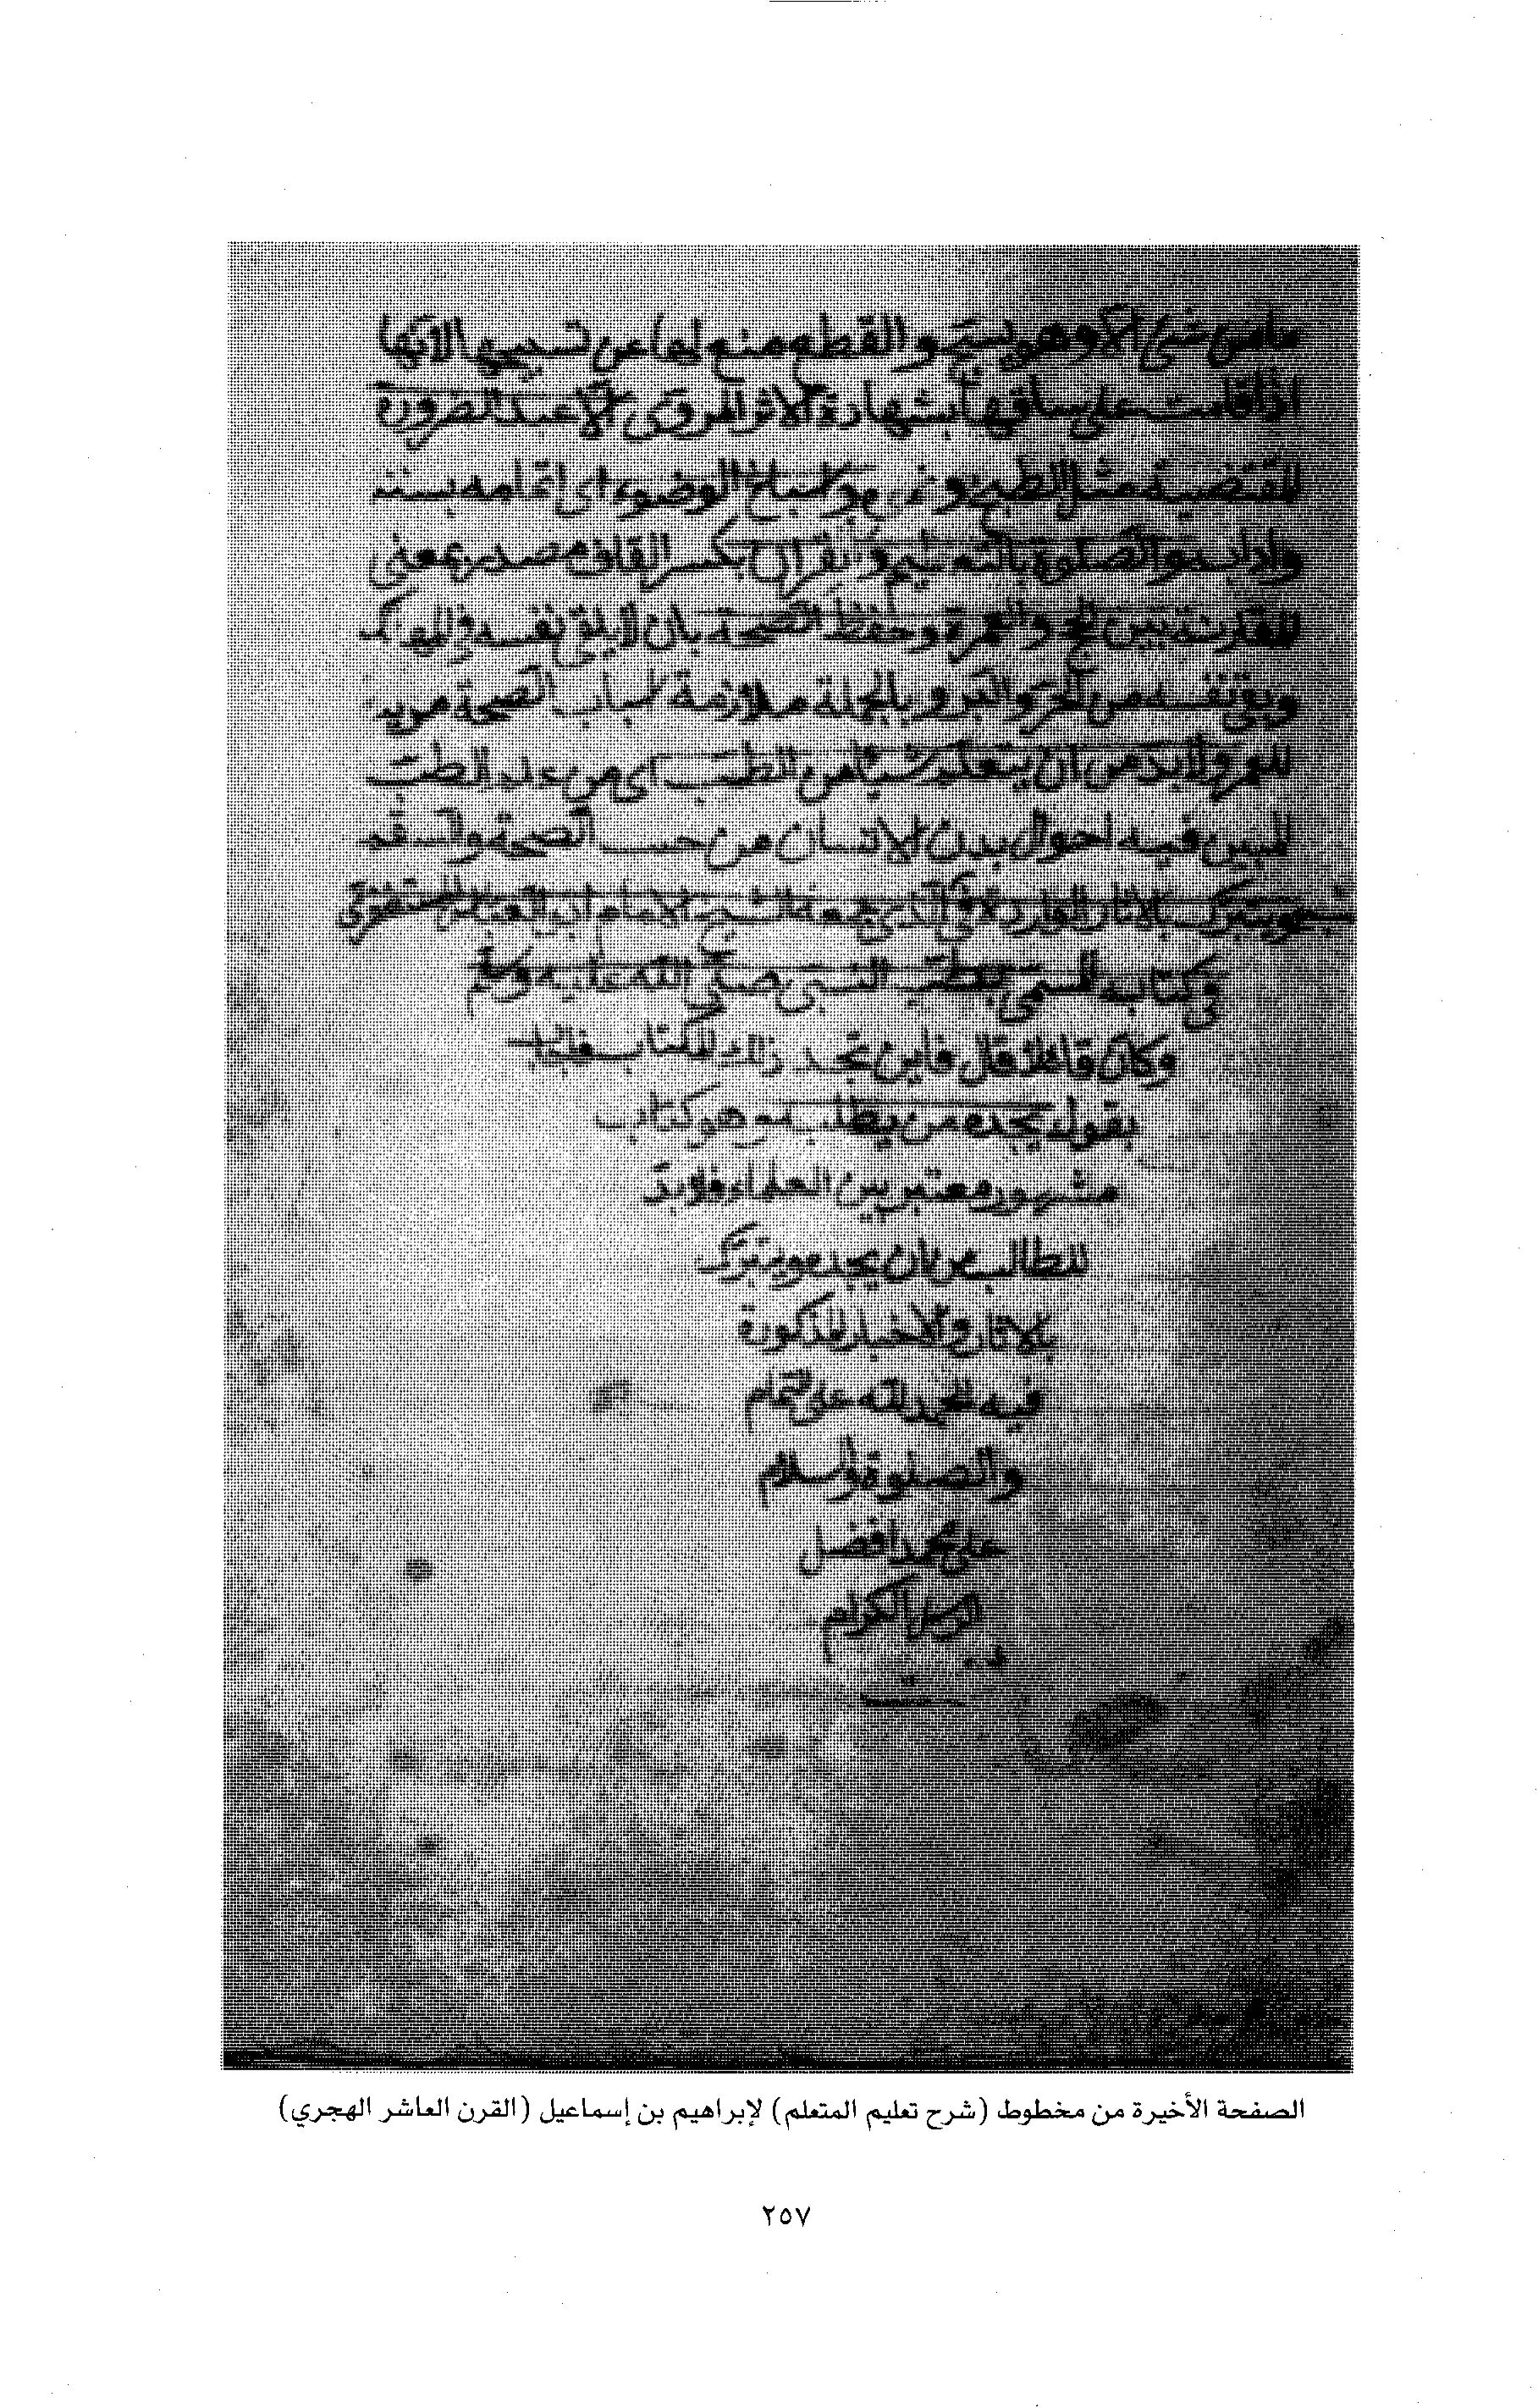 ما من شئ الا وهو يسبح والقطع منع لها عن تسبيحها لانها
اذا قامت على ساقها بشهادة الاثر المروى الا عند الضرورة
المقتضية مثل الطبخ وغيره واسباغ الوضوء اى اتمامه بسننه
وادابه والصلوة بالتعظيم والقران بكسر القاف مصدر بمعنى
المقارنة بين الحج والعمرة وحفظ الصحة بان لا يلقى نفسه فى المهالك
ويقى نفسه من الحر والبرد وبالجملة ملازمة اسباب الصحة مزيد
للعمر ولا بد من ان يتعلم شيئا من الطب اى من علم الطب
المبين فيه احوال بدن الانسان من حيث الصحة والسقم
ويتبرك بالاثار الواردة فى الذى جمعه الشيخ الامام ابو العباس المستغفرى
فى كتابه المسمى بطب النبى صلى الله عليه وسلم
وكان قائلا قال فاين نجد ذلك الكتاب
بقوله يجده من يطلبه وهو كتاب
مشهور معتبر بين العلماء فلا بد
للطالب من ان يجده ويتبرك
بالاثار والاخبار المذكورة
فيه الحمد لله على التمام
والصلوة والسلام
على محمد افضل
الرسل الكرام
الصفحة الأخيرة من مخطوط (شرح تعليم المتعلم) لإبراهيم بن إسماعيل (القرن العاشر الهجري)
٢٥٧